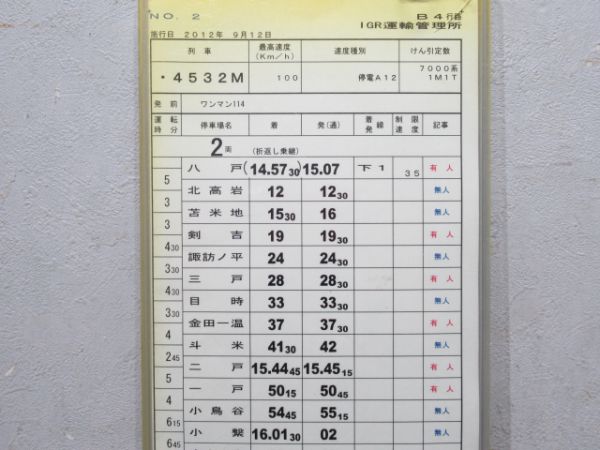 NO. 2 B4行路
施行日 2012年 9月12日 IGR運輸管理所
列車 最高速度(Km/h) 速度種別 けん引定数
・4532M 100 停電A12 7000系 1M1T
発前 ワンマン114
運転時分 停車場名 着 発(通) 着発線 制限速度 記事
2両 (折返し乗継)
八戸 (14.5730) 15.07 下1 35 有人
5
北高岩 12 1230 無人
3
苫米地 1530 16 無人
3
剣吉 19 1930 有人
430
諏訪ノ平 24 2430 無人
330
三戸 28 2830 有人
430
目時 33 3330 無人
330
金田一温 37 3730 有人
4
斗米 4130 42 無人
245
二戸 15.4445 15.4515 有人
5
一戸 5015 5045 有人
4
小鳥谷 5445 5515 無人
615
小繋 16.0130 02 無人
645